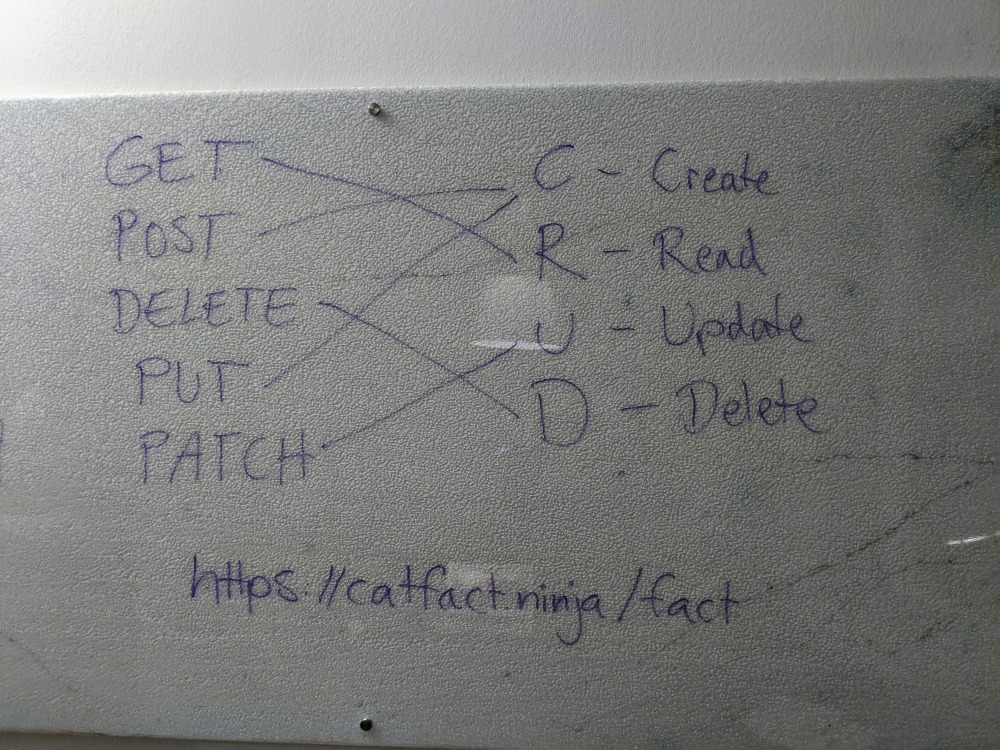 GET
POST
DELETE
PUT
PATCH
C - Create
R - Read
U - Update
D - Delete
https://catfact.ninja/fact